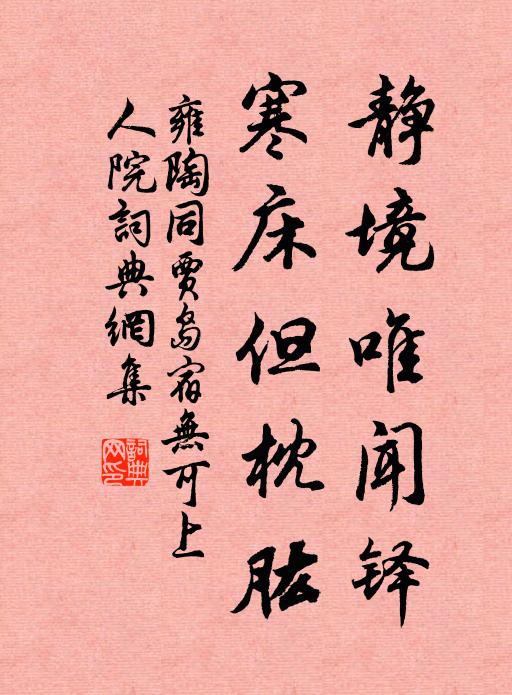 静境唯闻铎
寒床但枕肱
雍陶同贾岛宿無可上
人院詞典網集
詞典
网印